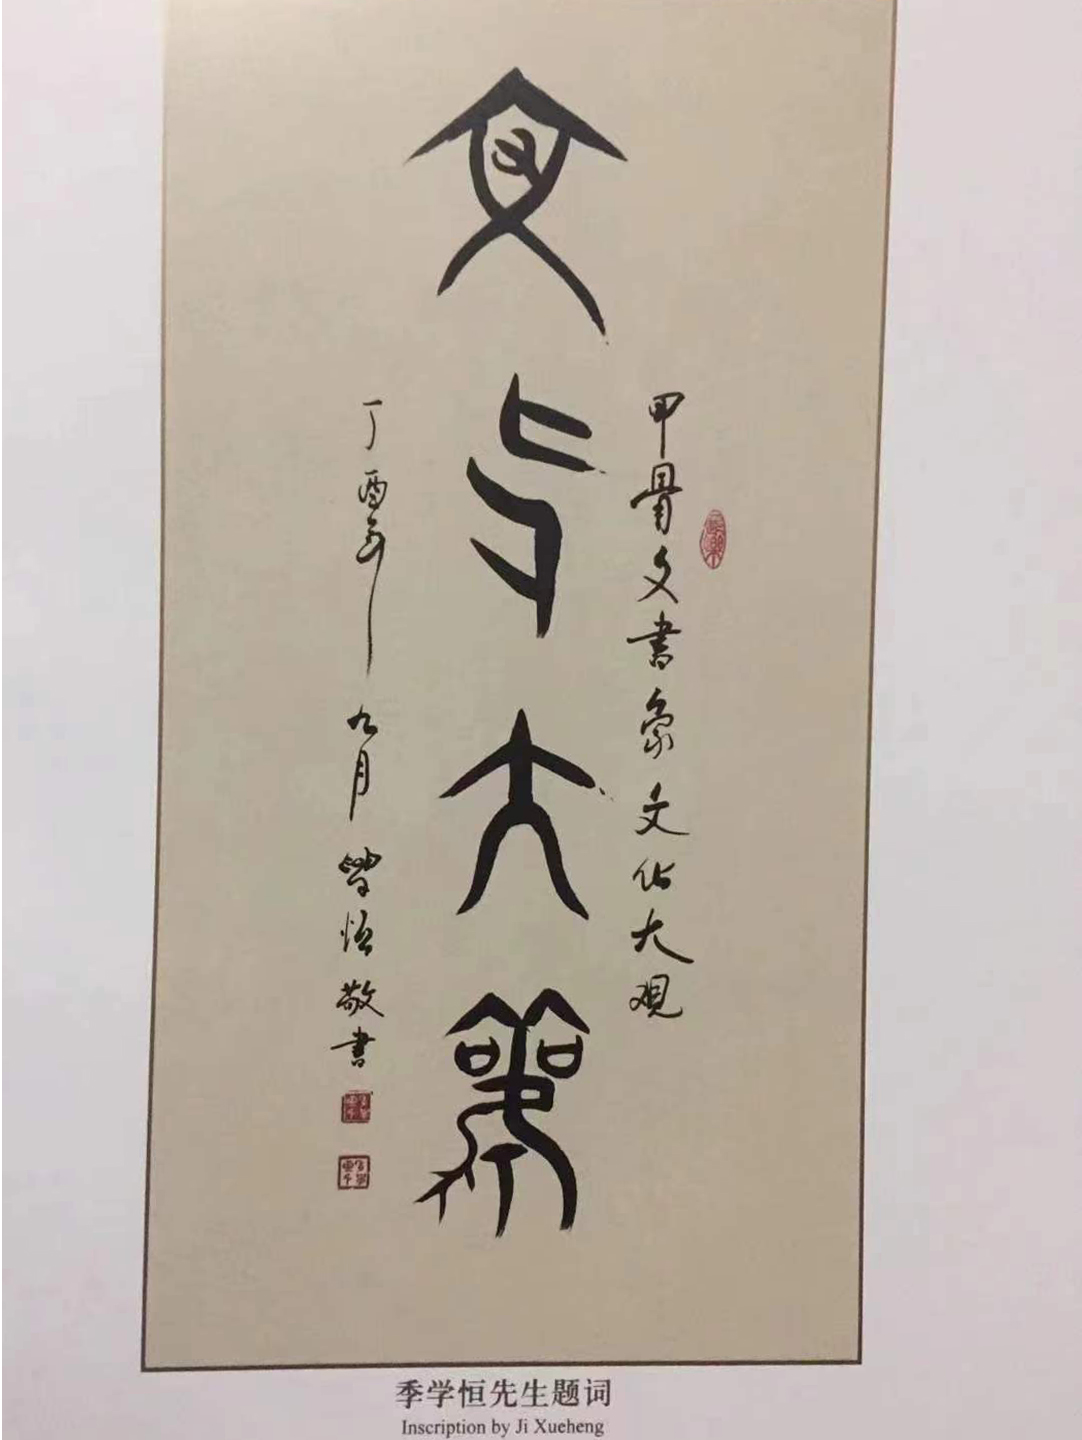 文化大观
甲骨文书象文化大观
丁酉年九月学恒敬书
季学恒先生题词
Inscription by Ji Xueheng